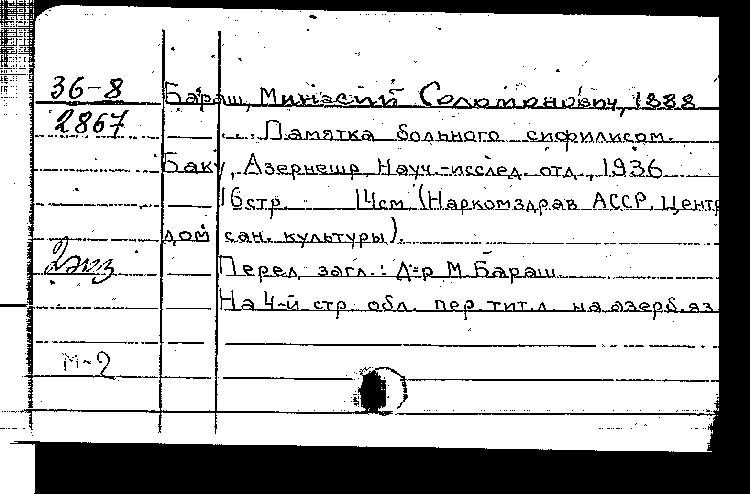 36-8 Бараш, Минэстй Соломонович, 1888
2867 ... Памятка больного сифилисом.
Баку, Азернешр, Науч.-исслед. отд., 1936
16стр. 14см (Наркомздрав АССР. Центр
дом сан. культуры).
2экз Перед загл.: Д-р М. Бараш.
На 4-й стр. обл. пер. тит. л. на азерб. яз
М-2